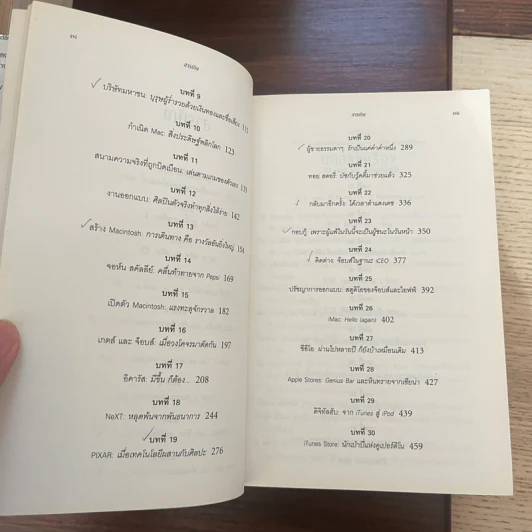 สารบัญ
บทที่ 9
บริษัทมหาชน: บุรุษผู้ร่ำรวยด้วยเงินทองและชื่อเสียง 112
บทที่ 10
กำเนิด Mac: สิ่งประดิษฐ์พลิกโลก 123
บทที่ 11
สนามความจริงที่ถูกบิดเบือน: เล่นตามเกมของตัวเอง 133
บทที่ 12
งานออกแบบ: ศิลปินตัวจริงทำทุกสิ่งให้ง่าย 142
บทที่ 13
สร้าง Macintosh: การเดินทาง คือ รางวัลอันยิ่งใหญ่ 154
บทที่ 14
จอห์น สคัลลีย์: คลื่นท้าทายจาก Pepsi 169
บทที่ 15
เปิดตัว Macintosh: แรงทะลุจักรวาล 182
บทที่ 16
เกตส์ และ จ็อบส์: เมื่อวงโคจรมาตัดกัน 197
บทที่ 17
อิคารัส: มีขึ้น ก็ต้อง... 208
บทที่ 18
NeXT: หลุดพ้นจากพันธนาการ 244
บทที่ 19
PIXAR: เมื่อเทคโนโลยีผสานกับศิลปะ 276
สารบัญ
บทที่ 20
ผู้ชายธรรมดาๆ: รักเป็นแค่คำคำหนึ่ง 289
บทที่ 21
ทอย สตอรี่: บัซกับวู้ดดี้มาช่วยแล้ว 325
บทที่ 22
กลับมาอีกครั้ง: 336
บทที่ 23
กอบกู้: เพราะผู้แพ้ในวันนี้จะเป็นผู้ชนะในวันหน้า 350
บทที่ 24
คิดต่าง: จ็อบส์ในฐานะ iCEO 377
บทที่ 25
ปรัชญาการออกแบบ: สตูดิโอของจ็อบส์และไอฟฟ์ 392
บทที่ 26
iMac: Hello (again) 402
บทที่ 27
ซีอีโอ: ผ่านไปหลายปี ก็ยังบ้าเหมือนเดิม 413
บทที่ 28
Apple Stores: Genius Bar และหินทรายจากเซียน่า 427
บทที่ 29
ดิจิทัลฮับ: จาก iTunes สู่ iPod 439
บทที่ 30
iTunes Store: นักเป่าปี่แห่งคูเปอร์ติโน 459